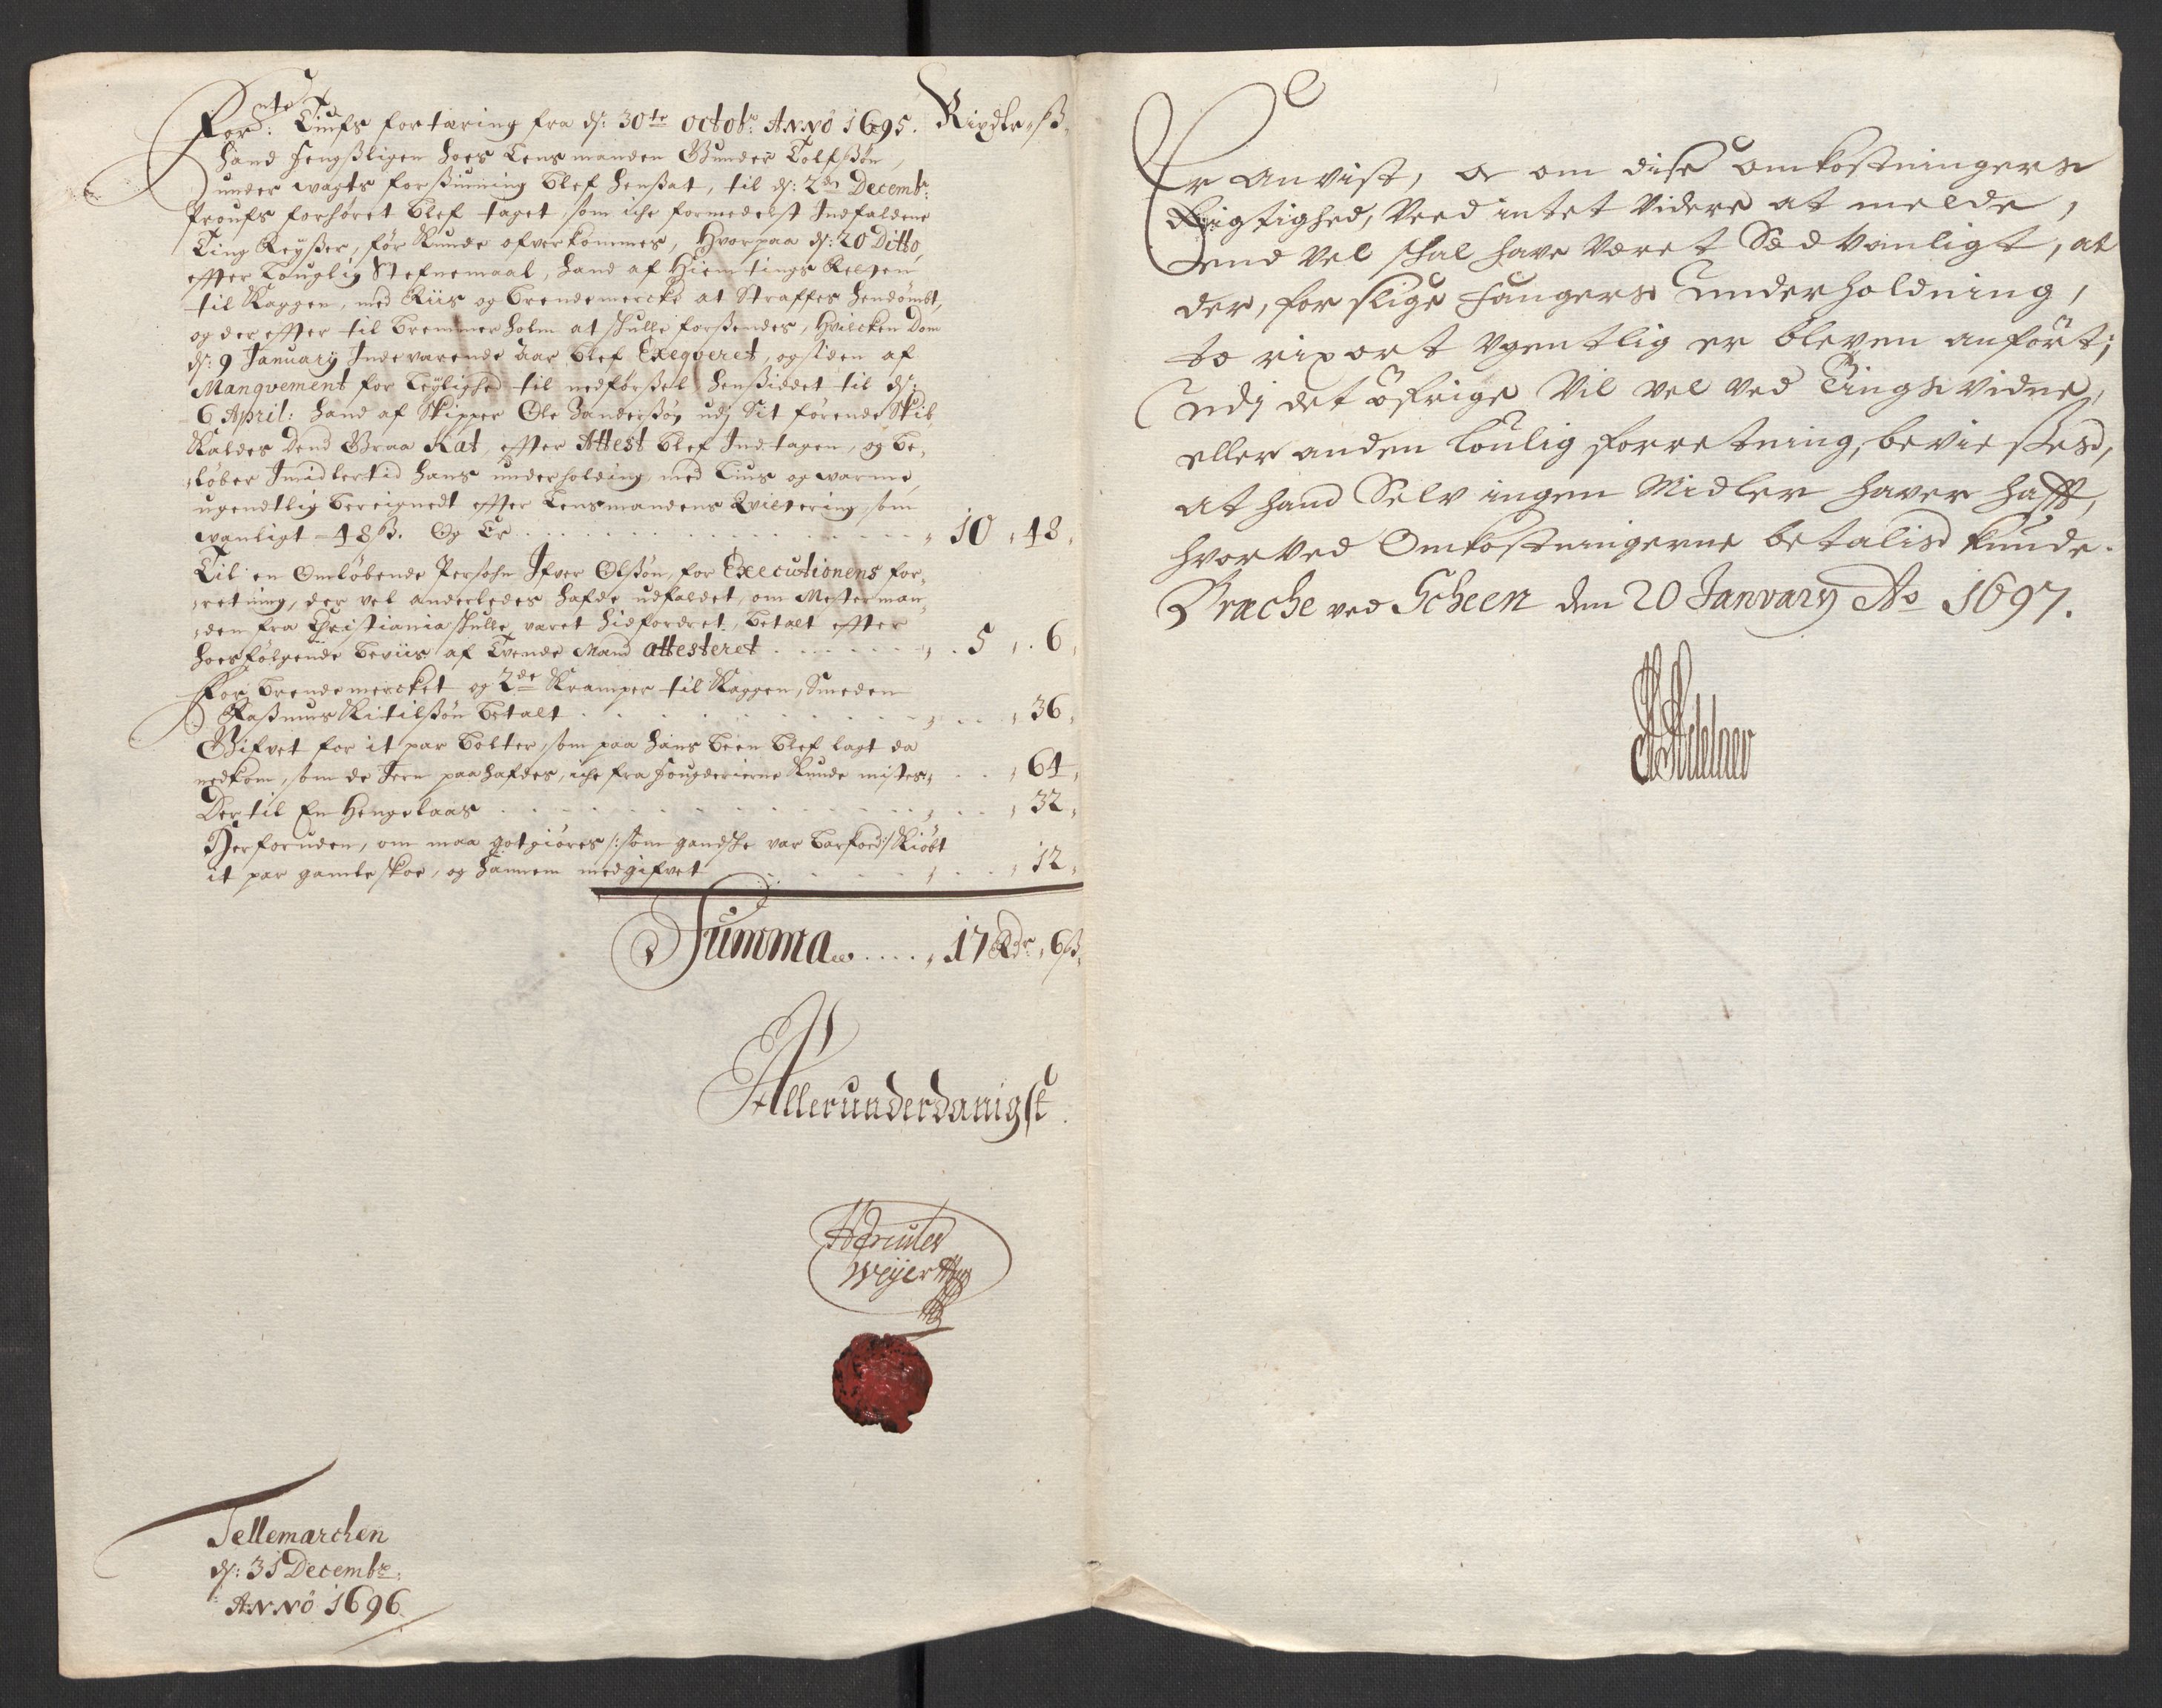 Forntd: Tiufs fortæring fra ds: 30te octobr Anno 1695. Rixdlr ß
hand fengßligen hoes Lensmanden Gunder Tolfßøn,
under wagts forßiuning blef henßat, til ds: 2den Decembr:
Proufs forhøret blef taget, som iche formedelst Indfaldene
Ting Reyßer, før kunde ofverkommes, Hvorpaa ds: 20 Ditto,
effter Louglig Stefnemaal, hand af Hiemtings Retten
til Kaggen, med Riis og brendemercke at Straffes hendømbt,
og der effter til bremmerholm at skulle forßendes, Hvilcken Dom
ds: 9 January Indeværende Aar blef Exeqveret, og siden af
Manqvement for Leylighed til nedførßel henßiddet til ds:
6 April: hand af Skipper Ole Sanderßøn udj Sit førende Skib
Kaldes Dend Graa Kat, effter Attest blef Indtagen, og be-
løber Imidlertid hans underholding med Lius og warme,
ugendtlig bereignedt effter Lensmandens Qvittering som
wanligt - 48 ß. Og Er . . . 10 , 48 ,
Til en Omløbende Persohn Ifver Olßøn, for Executionens for-
retning, der vel anderledes hafde udfaldet, om Mesterman-
den fra Christiania skulle været hidfordret, betalt effter
hoesfølgende beviis af Tvende Mænd attesteret . . . 5 , 6 ,
For brendemercket og 2de Kramper til Kaggen, Smeden
Raßmus Kitilßøn betalt . . . 36 ,
Gifvet for it par bolter, som paa hans been blef lagt da
nedkom, som de Jern paa hafdes, iche fra fougderierne kunde mistes, . . 64 ,
Dertil En Hengelaas . . . 32 ,
Herforuden, om maa gotgiøres /: som gandske var barfoed :/ Kiøbt
it par gamle skoe, og hannem medgifvet . . . 12 ,
Summa . . . . 17 Rdr , 6 ß,
Allerunderdanigst
Hercules
Weyer
Tellemarchen
ds: 31 Decembr:
Anno 1696
Er anvist, og om dise omkostningers
Rigtighed, Veed intet Videre at melde,
end Vel skal have Været Sædvanligt, at
der, for slige fangers Underholdning,
to rixort Ugentlig er bleven anført;
Udj det øfrige Vil vel ved Tings Vidne,
eller anden loulig forretning, bevießes,
at hand Selv ingen Midler haver hafft,
hvorved Omkostningerne betalis kunde.
Brache ved Scheen den 20 January Ao 1697.
Adelaer